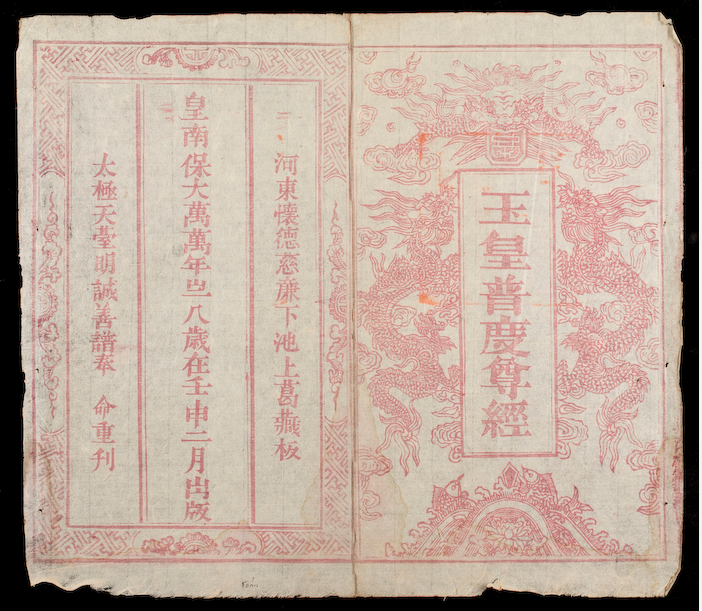 玉皇普慶尊經
河東懷德慈廉下池上葛燕板
皇南保大萬萬年㞢八歲在壬申二月出版
太極天臺明誠善譜奉 命重刊